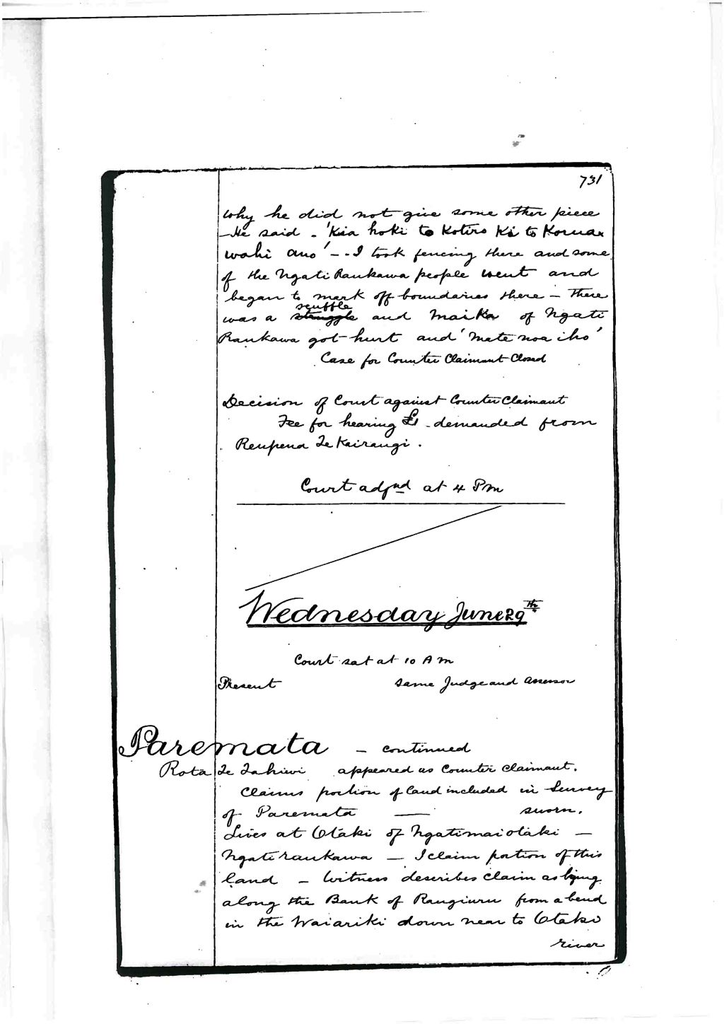 731
why he did not give some other piece
– He said – 'Kia hoki te Kotiro Ki te Koruax
wahi ano' – – I took fencing there and some
of the Ngati Raukawa people went and
began to mark off boundaries there – There
scuffle
was a struggle and Maika of Ngati
Raukawa got hurt and 'mate noa iho'
Case for Counter Claimant Closed
Decision of Court against Counter Claimant
Fee for hearing £1 – demanded from
Reupena Te Kairangi .
Court adjnd at 4 Pm
Wednesday June 29th
Court sat at 10 A m
Present same Judge and assessor
Paremata – continued
Rota Te Tahiwi appeared as Counter claimant.
Claims portion of land included in Survey
of Paremata — sworn.
Lives at Otaki of Ngatimaiotaki –
Ngatiraukawa – I claim portion of this
land – Witness describes claim as lying
along the Bank of Rangiuru from a bend
in the Waiariki down near to Otaki
river